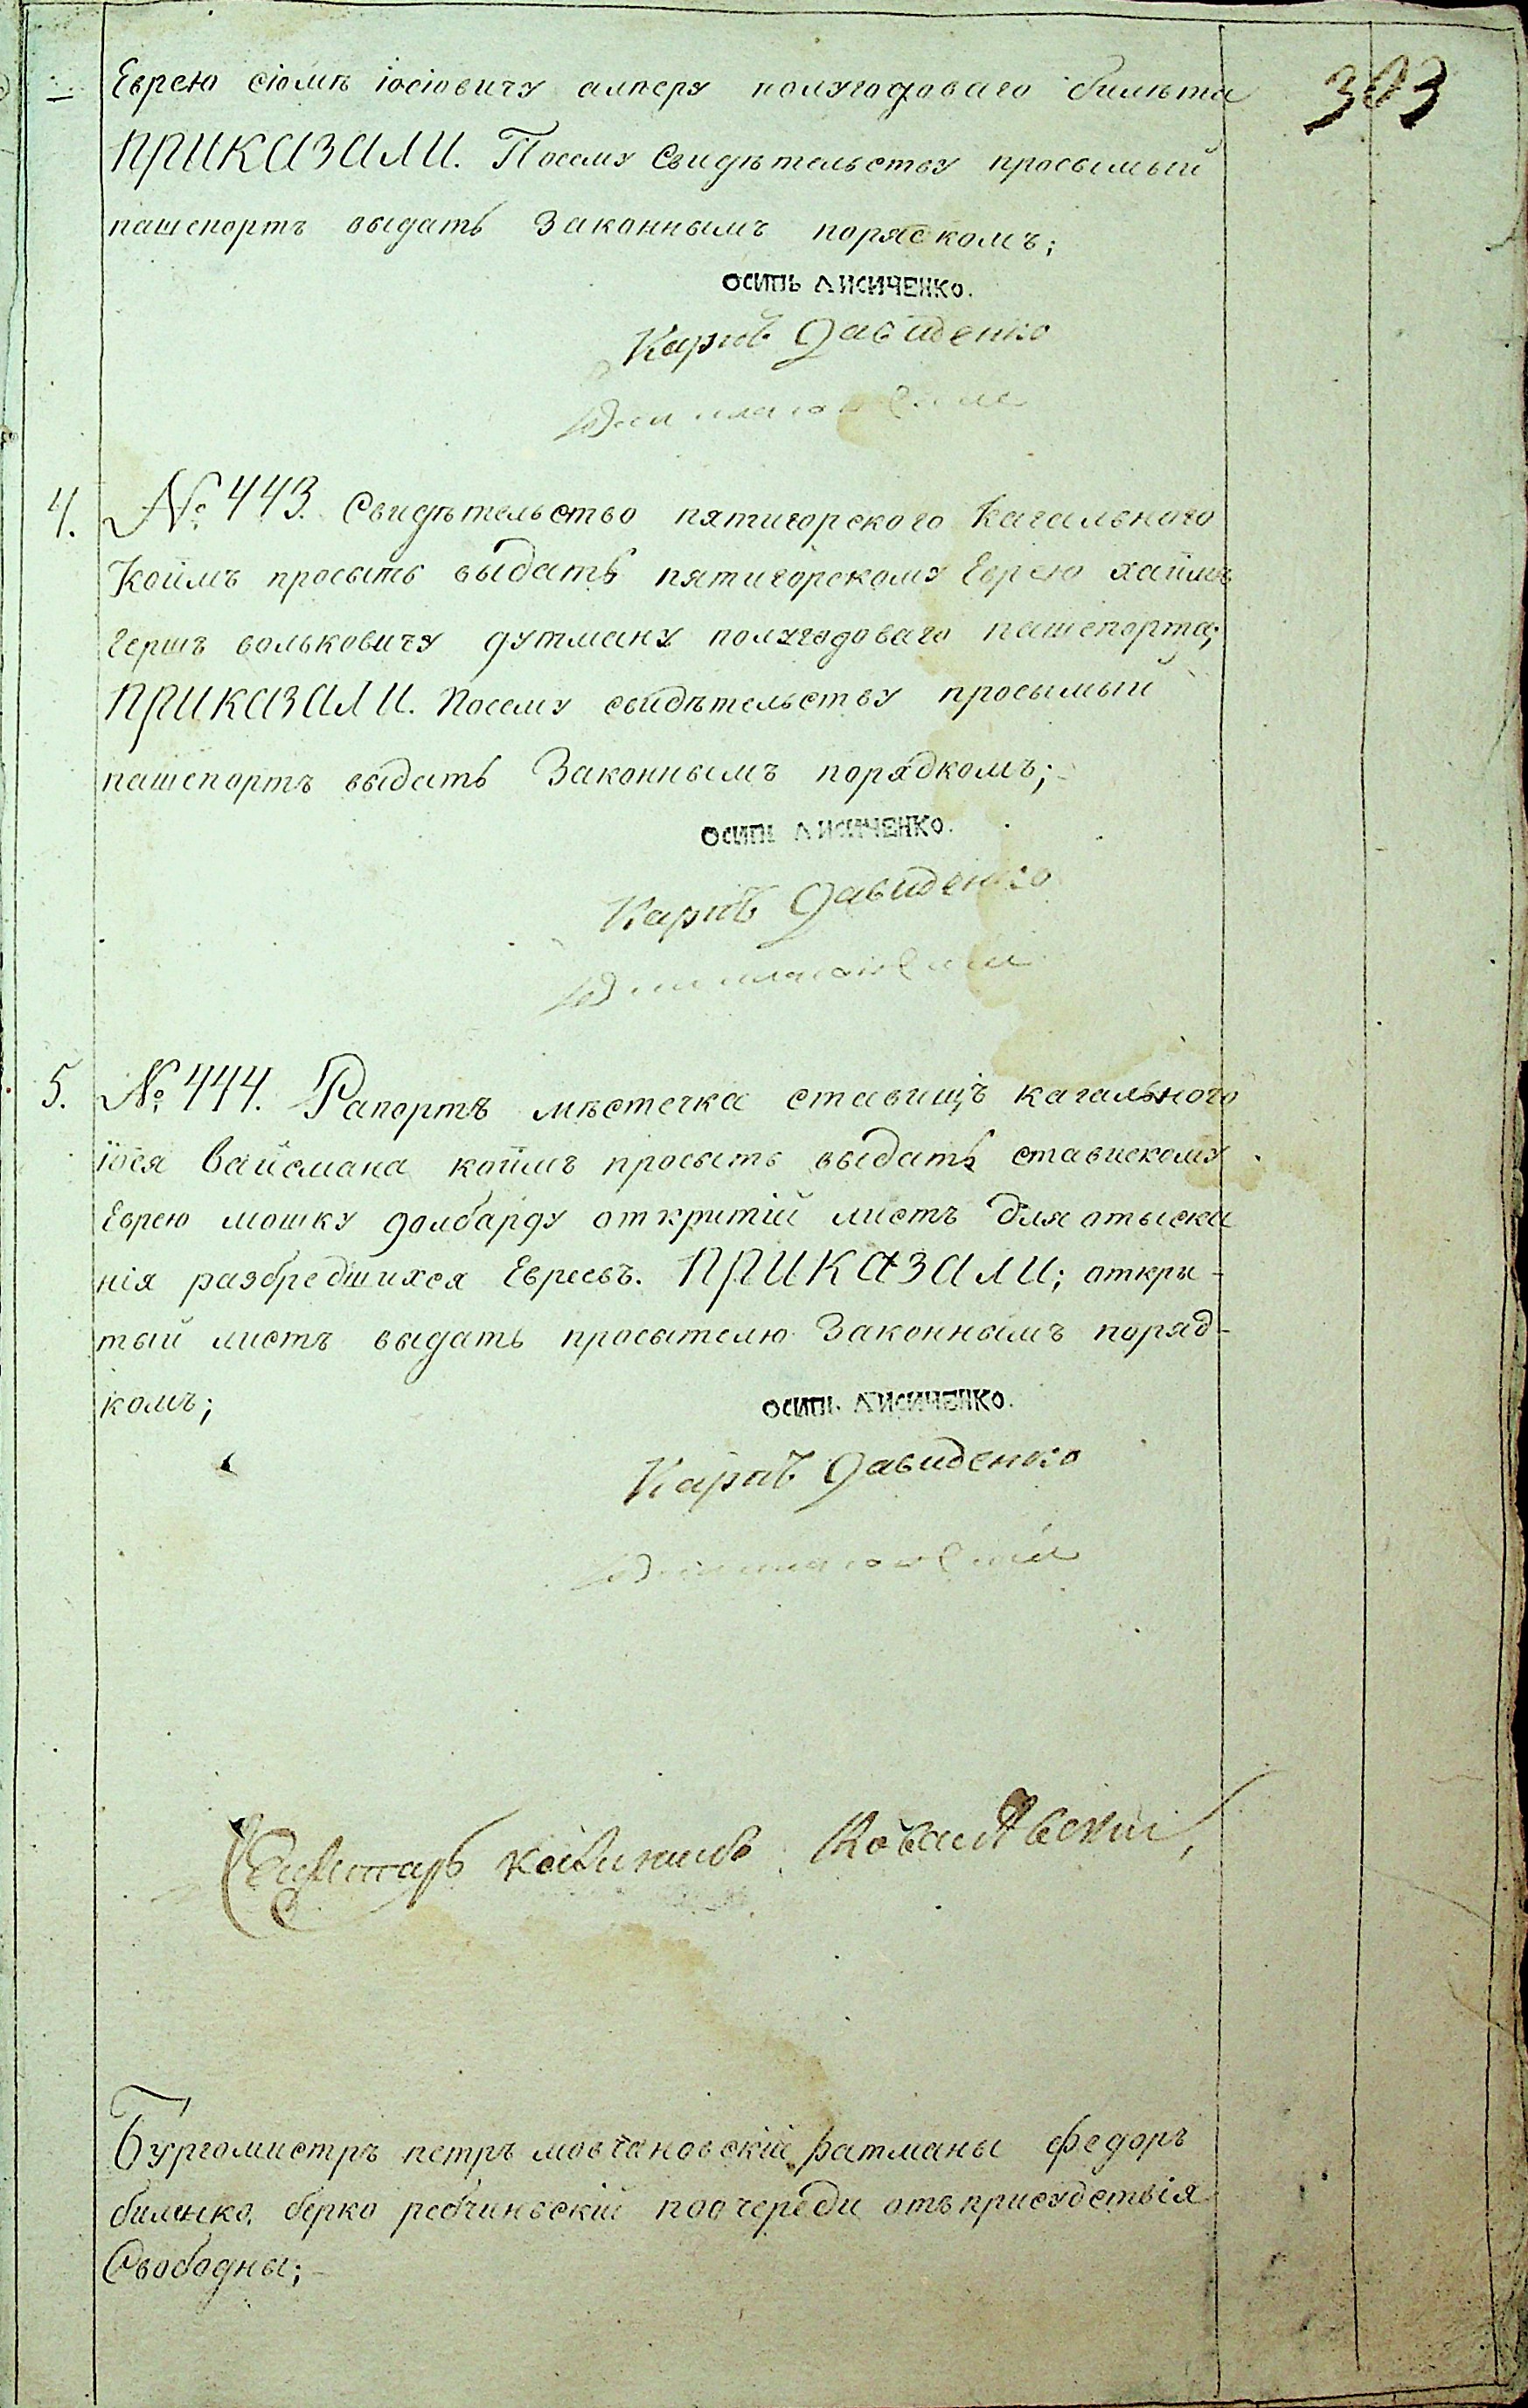 303
Еврею сіомѣ іосіовичу алперу полугодоваго билѣта
ПРИКАЗАЛИ. Посему Свидѣтельству просымый
пашепортъ выдать Законнымъ порядкомъ;
ОСИПЬ ЛИСИЧЕНКО.
Карпъ Давиденко
4. № 443. Свидѣтельство пятигорского Кагального
Коимъ просыть выдать пятигорскому Еврею хаимъ
гершъ вольковичу дутману полугодоваго пашепорта;
ПРИКАЗАЛИ. Посему свидѣтельству просымый
пашепортъ выдать Законнымъ порядкомъ;
ОСИПЬ ЛИСИЧЕНКО.
Карпъ Давиденко
5. № 444. Рапортъ мѣстечка ставищъ кагального
іося вайсмана коимъ просыть выдать ставискому
Еврею мошку долбарду откритій листъ для отыска
нія разбредшихся Евреевъ. ПРИКАЗАЛИ; откры-
тый листъ выдать просытелю Законнымъ поряд-
комъ;
ОСИПЬ ЛИСИЧЕНКО.
Карпъ Давиденко
Секретарь Ковалѣвскій
Бургомистръ петръ мовчановскій ратманы Федоръ
биленко, берко ребчиновскій поочереди отъ присудствія
Свободны;